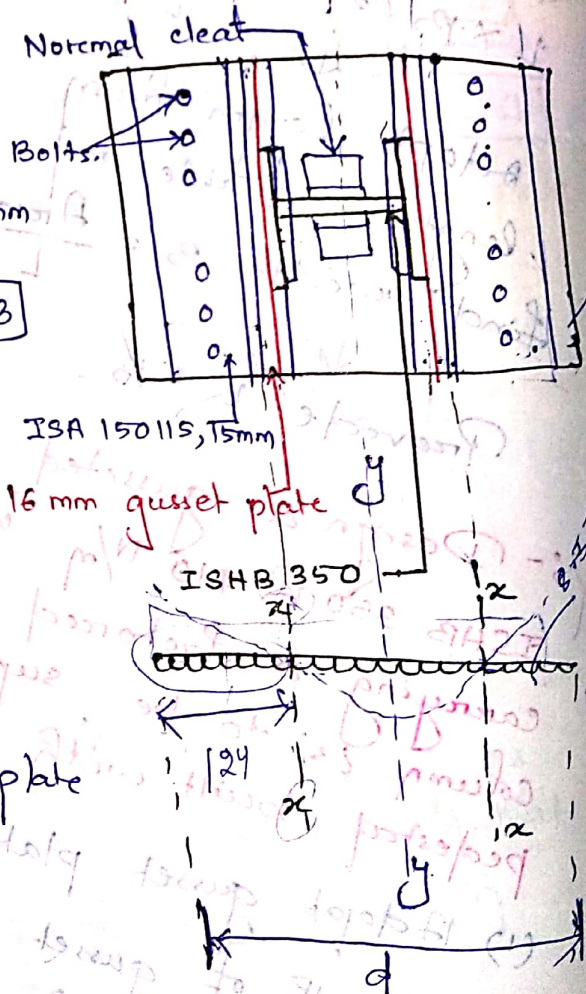 Normal cleat
Bolts.
mm
3
ISA 150115, 15mm
16 mm gusset plate
y
ISHB 350
x
x
124
plate
x
x
y
d